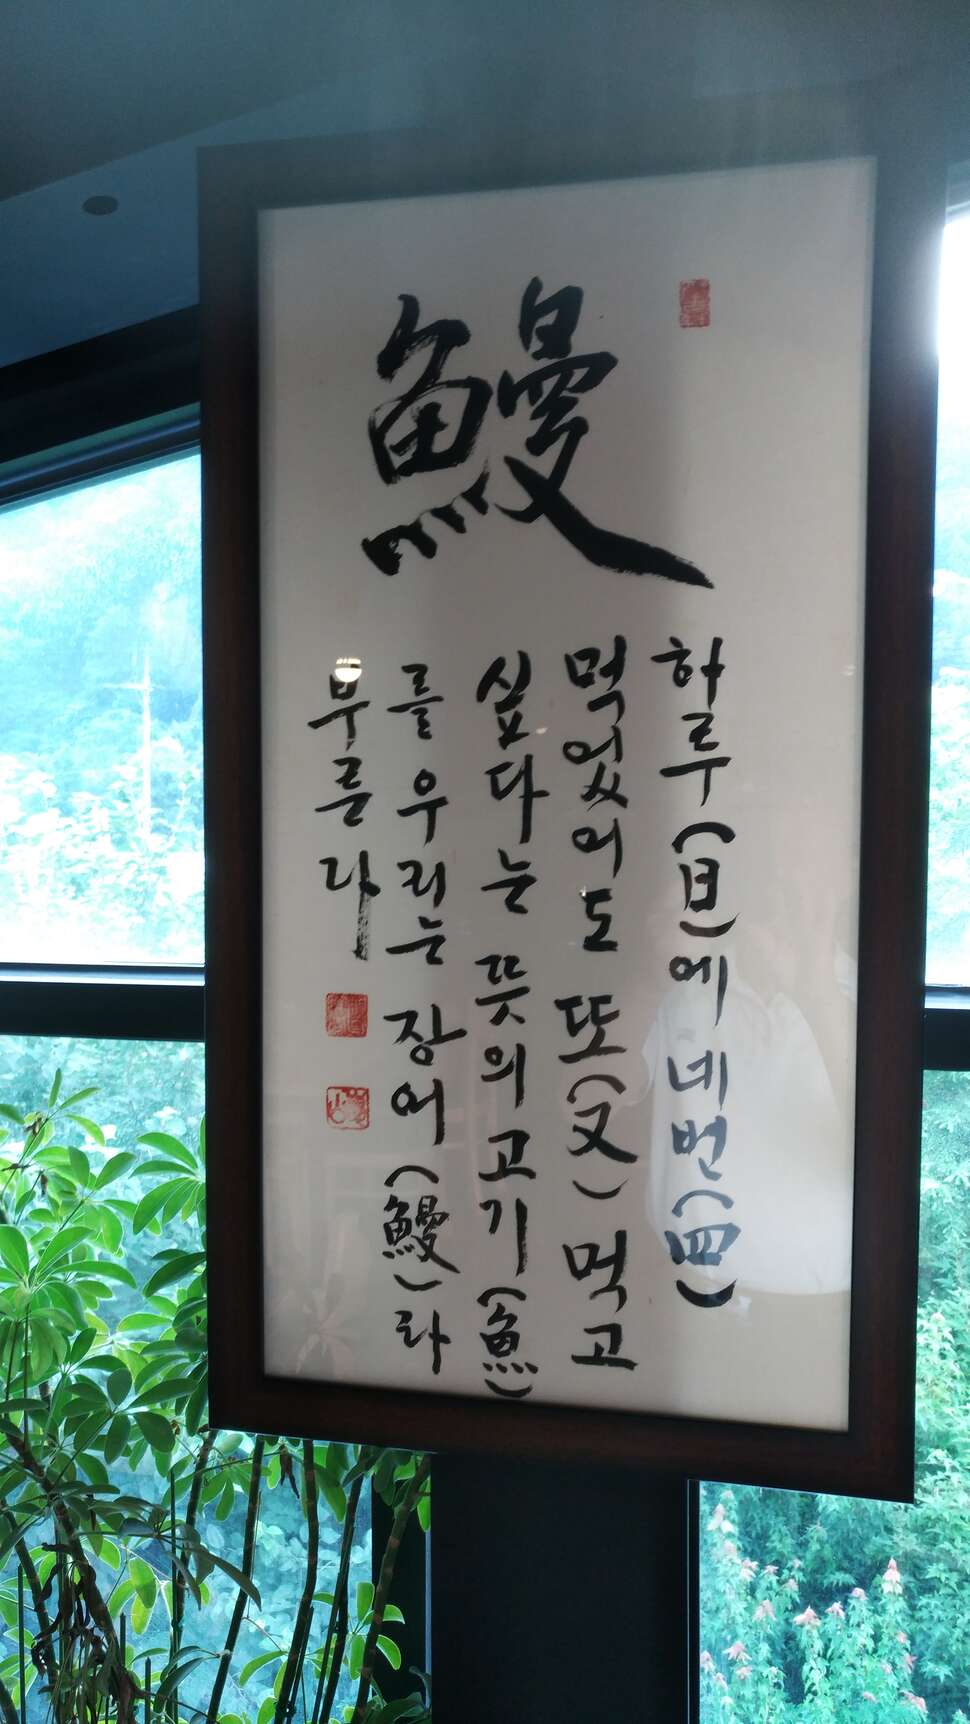 鰻
하루(日)에 네번(四)
먹었어도 또(又) 먹고
싶다는 뜻의 고기(魚)
를 우리는 장어(鰻)라
부른다